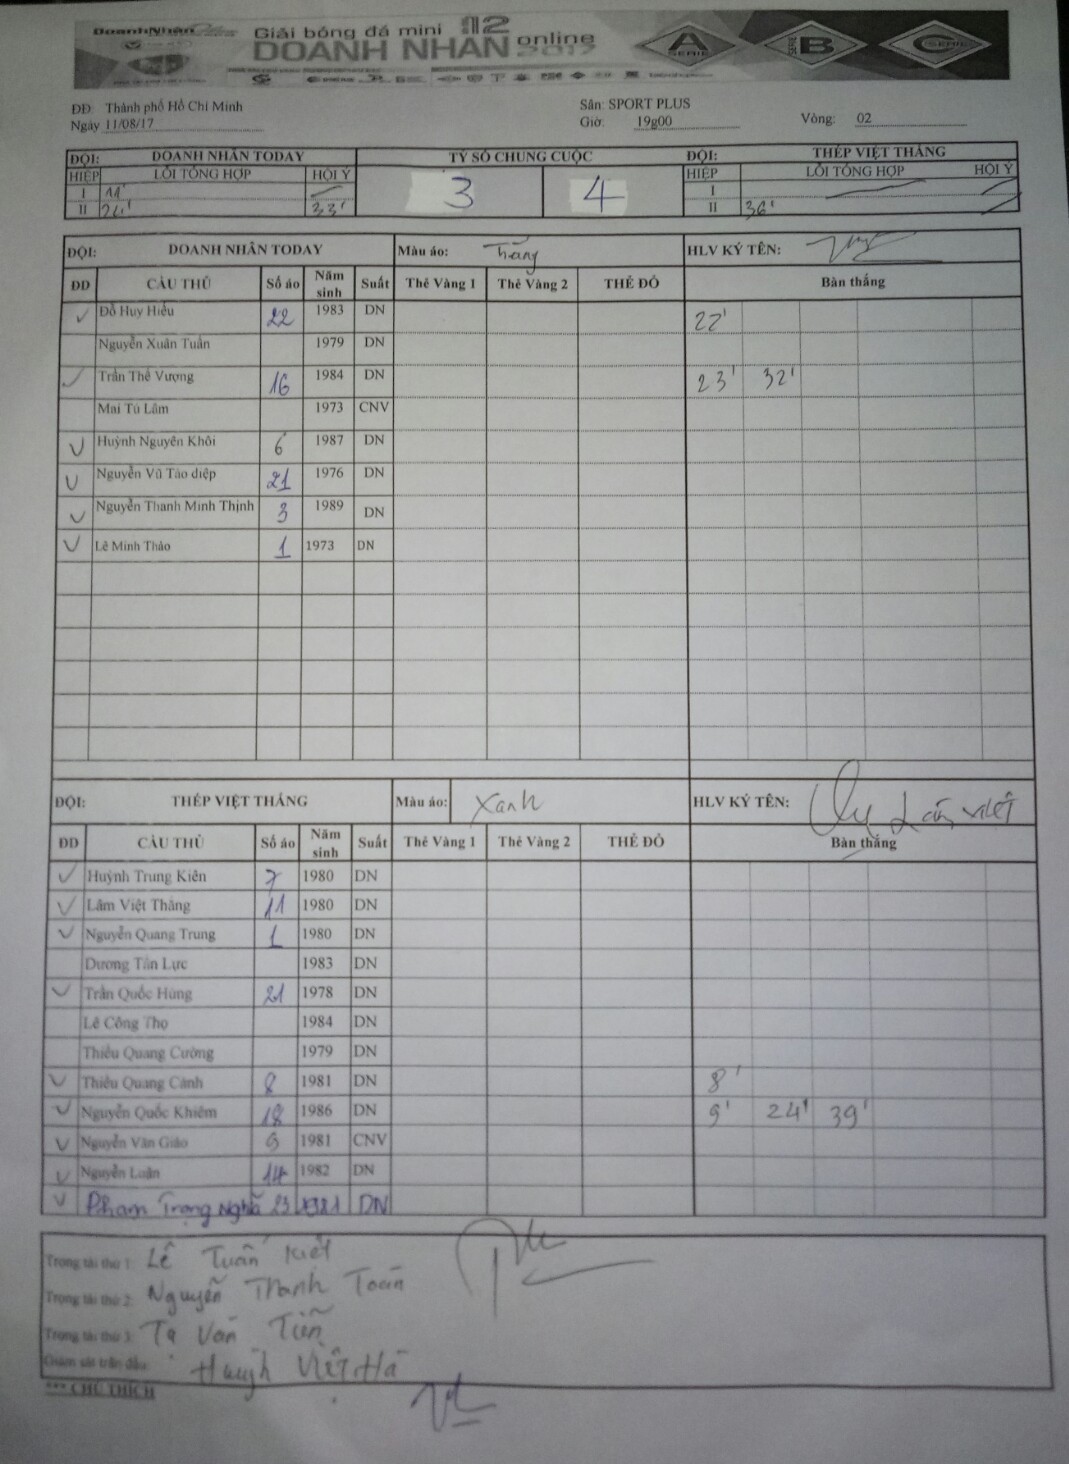 DoanhNhân
Giải bóng đá mini 12
DOANH NHÂN online 2017
A SERIE
SERIE B
C SERIE
ĐĐ: Thành phố Hồ Chí Minh Sân: SPORT PLUS
Ngày 11/08/17 Giờ: 19g00 Vòng: 02
ĐỘI: DOANH NHÂN TODAY TỶ SỐ CHUNG CUỘC ĐỘI: THÉP VIỆT THẮNG
HIỆP LỖI TỔNG HỢP HỘI Ý 3 4 HIỆP LỖI TỔNG HỢP HỘI Ý
I 11' I
II 33' II 36'
ĐỘI: DOANH NHÂN TODAY Màu áo: Trắng HLV KÝ TÊN:
ĐD CẦU THỦ Số áo Năm sinh Suất Thẻ Vàng 1 Thẻ Vàng 2 THẺ ĐỎ Bàn thắng
Đỗ Huy Hiếu 22 1983 DN 22'
Nguyễn Xuân Tuấn 1979 DN
Trần Thế Vượng 16 1984 DN 23' 32'
Mai Tú Lâm 1973 CNV
Huỳnh Nguyên Khôi 6 1987 DN
Nguyễn Vũ Tao diệp 21 1976 DN
Nguyễn Thanh Minh Thịnh 3 1989 DN
Lê Minh Thảo 1 1973 DN
ĐỘI: THÉP VIỆT THẮNG Màu áo: Xanh HLV KÝ TÊN:
ĐD CẦU THỦ Số áo Năm sinh Suất Thẻ Vàng 1 Thẻ Vàng 2 THẺ ĐỎ Bàn thắng
Huỳnh Trung Kiên 7 1980 DN
Lâm Việt Thắng 11 1980 DN
Nguyễn Quang Trung 1 1980 DN
Dương Tấn Lực 1983 DN
Trần Quốc Hùng 21 1978 DN
Lê Công Thọ 1984 DN
Thiều Quang Cường 1979 DN
Thiều Quang Cảnh 8 1981 DN 8'
Nguyễn Quốc Khiêm 18 1986 DN 9' 24' 39'
Nguyễn Văn Giáo 9 1981 CNV
Nguyễn Luân 14 1982 DN
Phạm Trọng Nghĩa 23 1981 DN
Trọng tài thứ 1: Lê Tuấn Kiệt
Trọng tài thứ 2: Nguyễn Thanh Toàn
Trọng tài thứ 3: Tạ Văn Tiến
Giám sát trận đấu: Huỳnh Việt Hà
*** CHÚ THÍCH